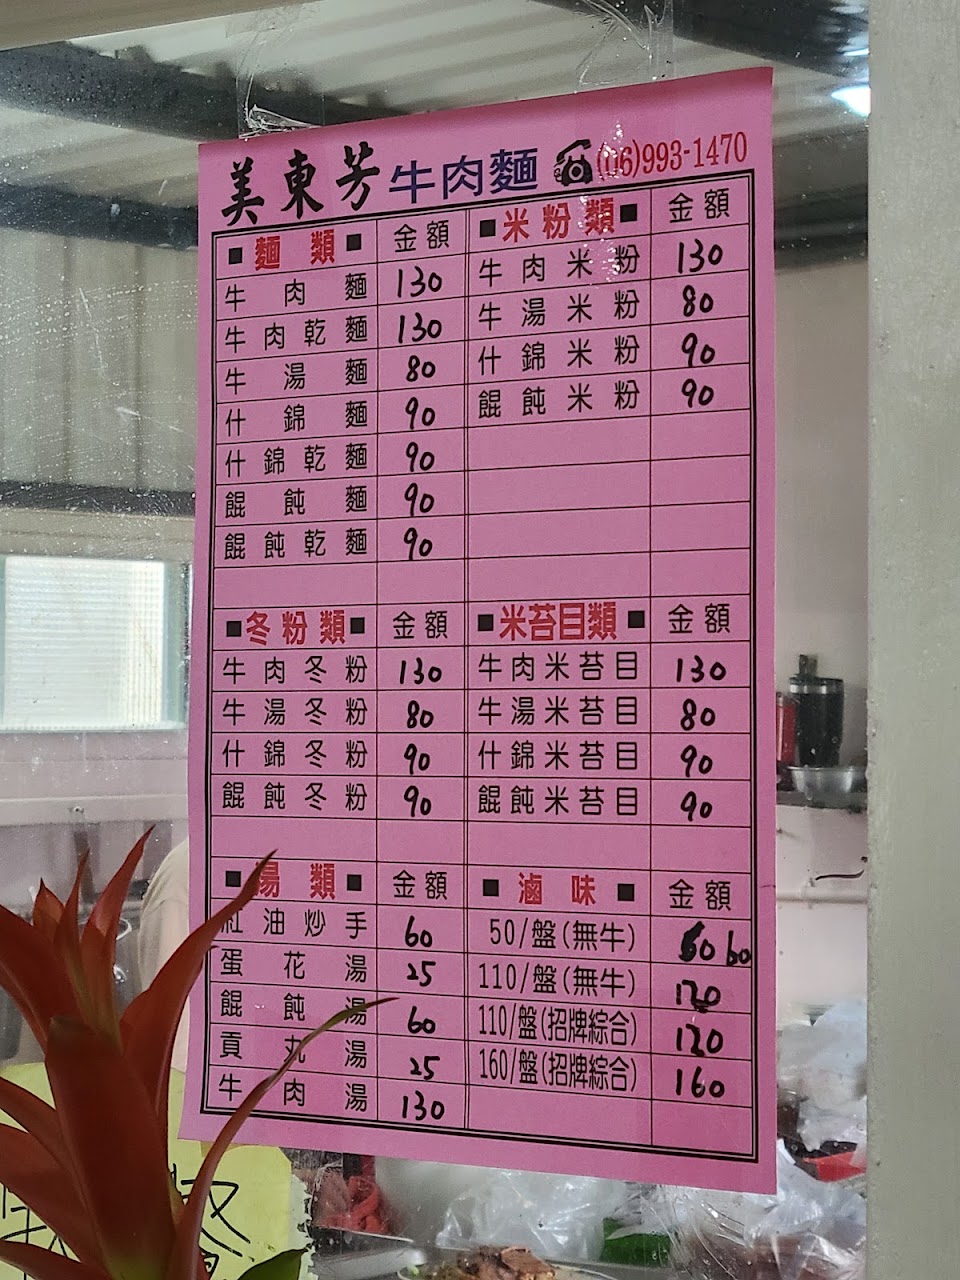 美東芳 牛肉麵 ☎(06)993-1470
■麵類■ 金額
牛肉麵 130
牛肉乾麵 130
牛湯麵 80
什錦麵 90
什錦乾麵 90
餛飩麵 90
餛飩乾麵 90
■米粉類■ 金額
牛肉米粉 130
牛湯米粉 80
什錦米粉 90
餛飩米粉 90
■冬粉類■ 金額
牛肉冬粉 130
牛湯冬粉 80
什錦冬粉 90
餛飩冬粉 90
■米苔目類■ 金額
牛肉米苔目 130
牛湯米苔目 80
什錦米苔目 90
餛飩米苔目 90
■湯類■ 金額
紅油炒手 60
蛋花湯 25
餛飩湯 60
貢丸湯 25
牛肉湯 130
■滷味■ 金額
50/盤(無牛) 60
110/盤(無牛) 120
110/盤(招牌綜合) 120
160/盤(招牌綜合) 160